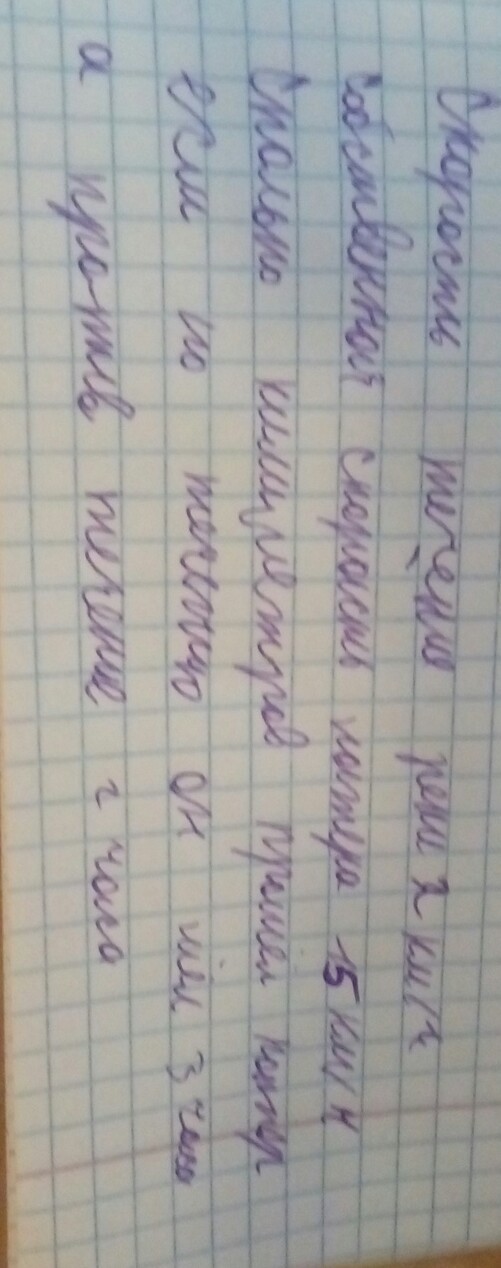 Скорость течению реки 2 км/ч
Собственная скорость катера 15 км/ч
Сколько километров прошел катер
если по течению он шёл 3 часа
а против течение 2 часа